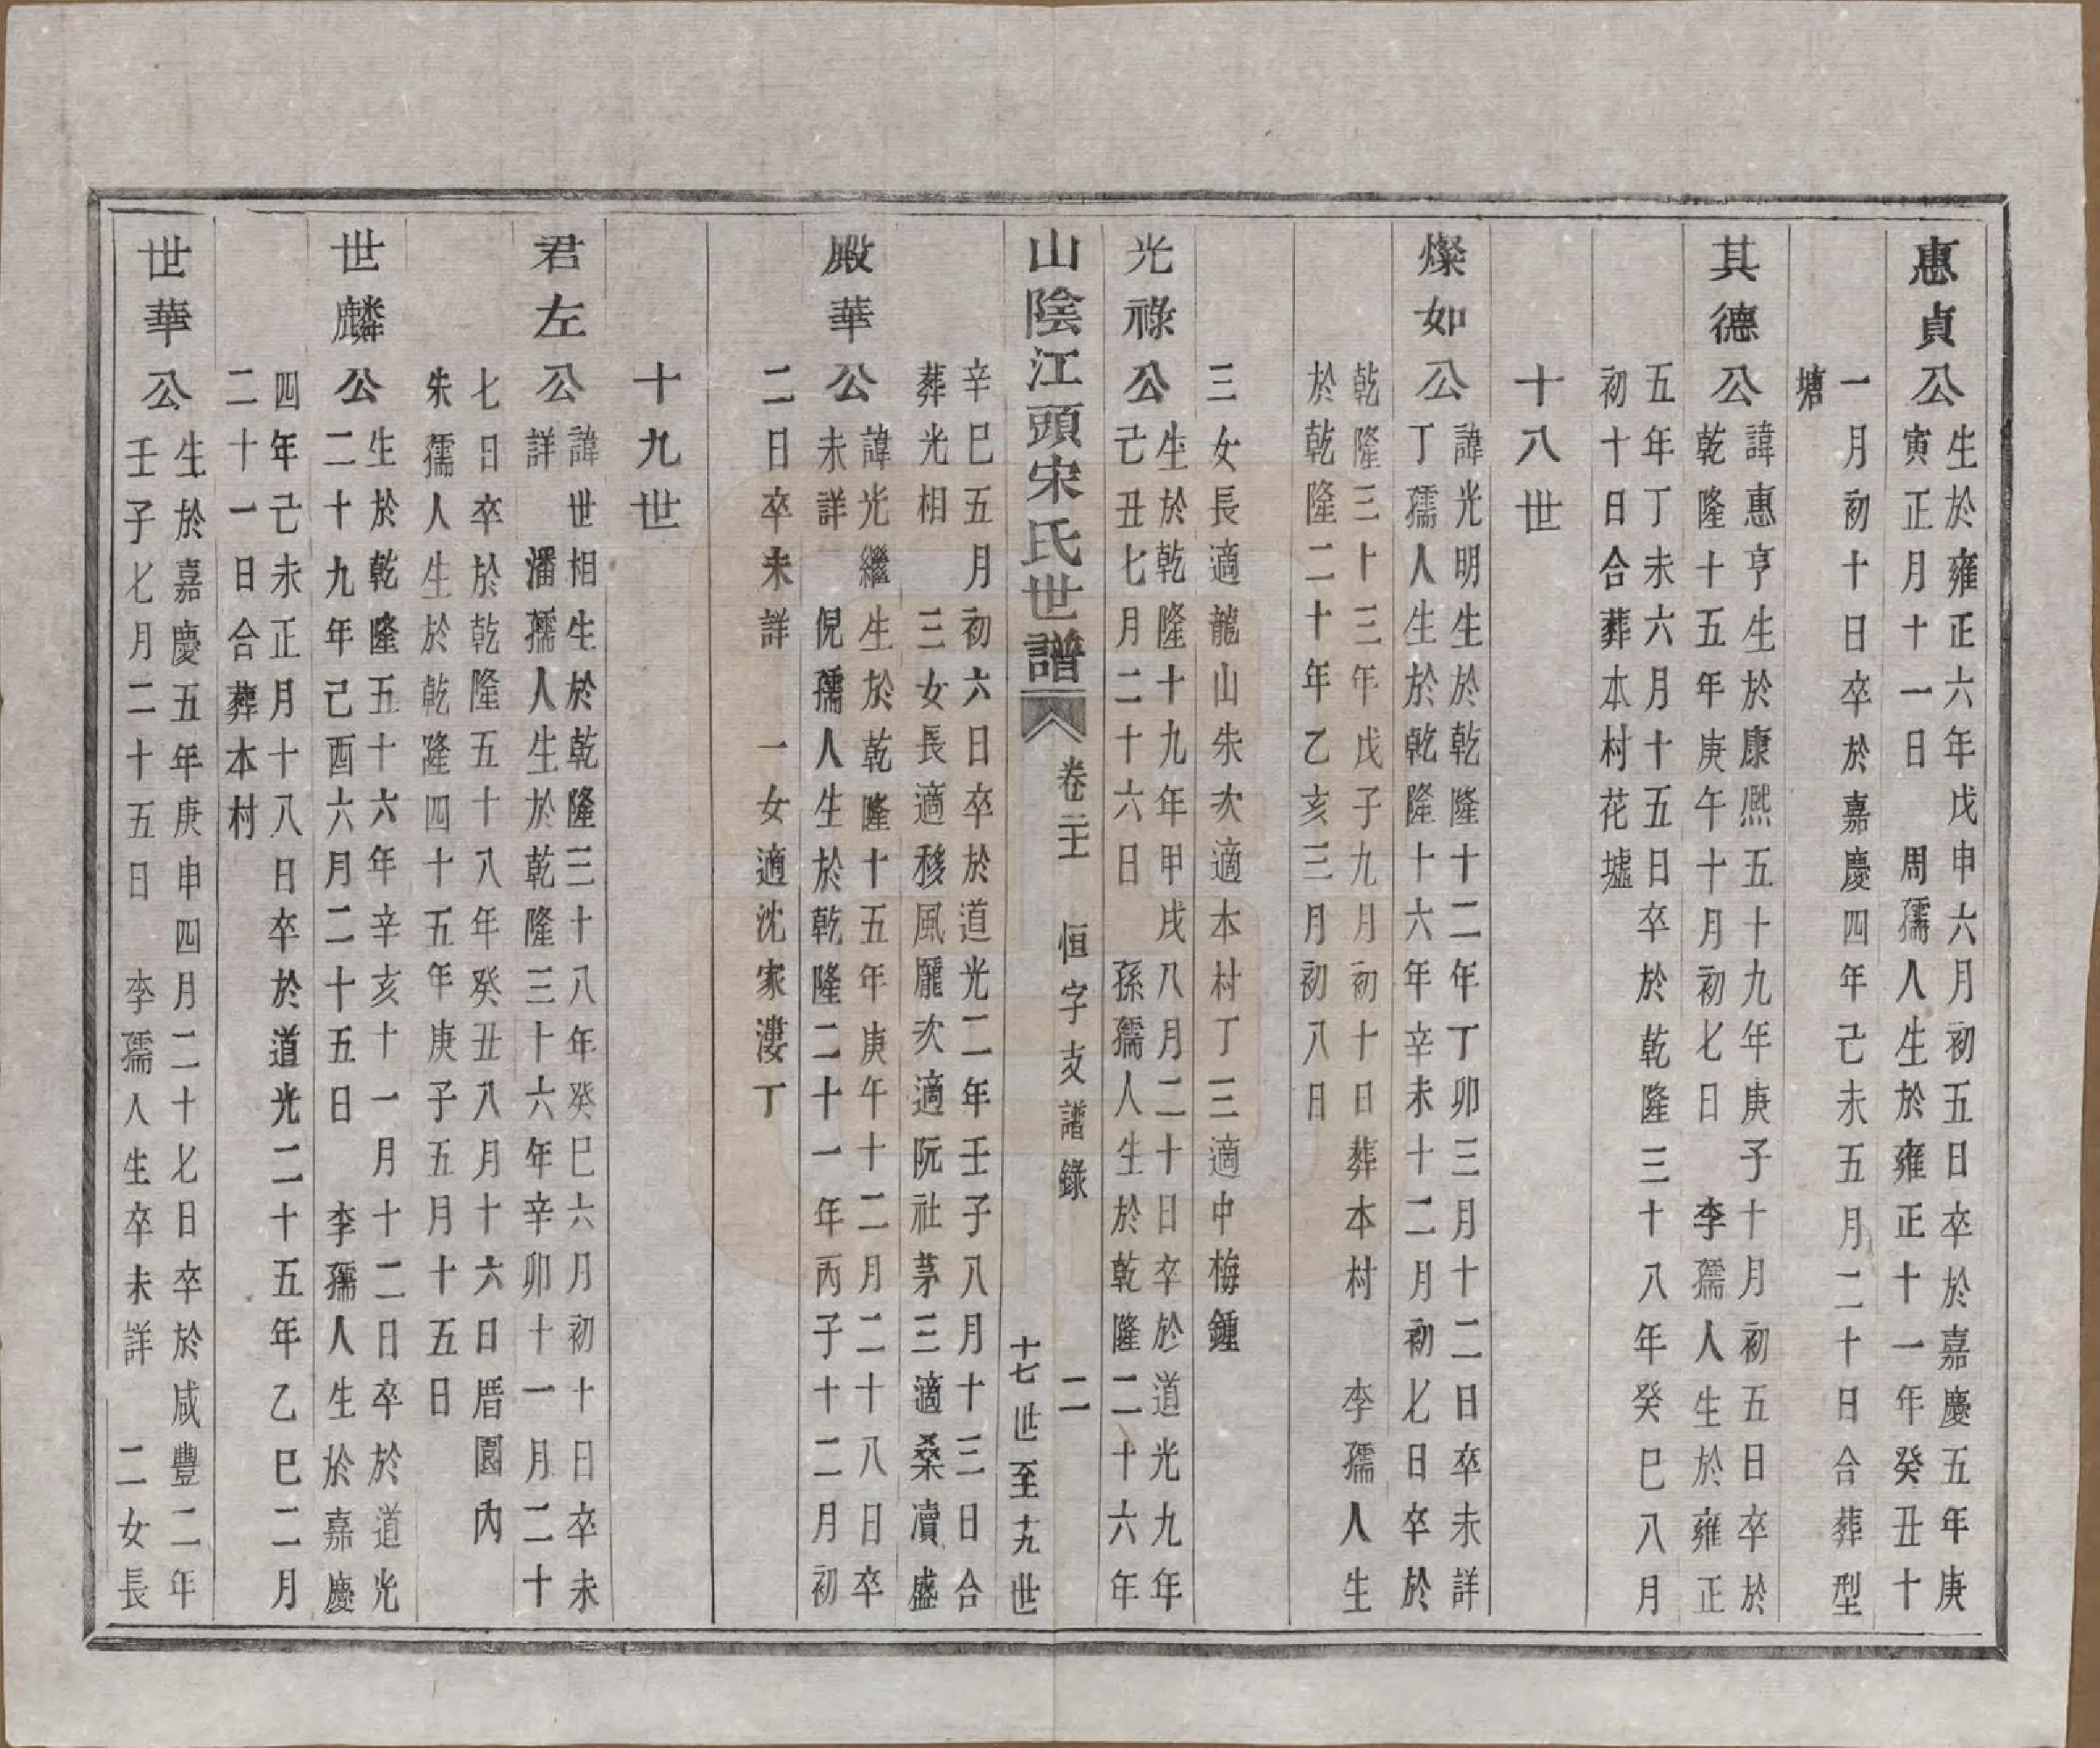 惠貞公
生於雍正六年戊申六月初五日卒於嘉慶五年庚
寅正月十一日　周孺人生於雍正十一年癸丑十
一月初十日卒於嘉慶四年己未五月二十日合葬型
塘
其德公
諱惠亨生於康熈五十九年庚子十月初五日卒於
乾隆十五年庚午十月初七日　李孺人生於雍正
五年丁未六月十五日卒於乾隆三十八年癸巳八月
初十日合葬本村花墟
十八世
燦如公
諱光明生於乾隆十二年丁卯三月十二日卒未詳
丁孺人生於乾隆十六年辛未十二月初七日卒於
乾隆三十三年戊子九月初十日葬本村　李孺人生
於乾隆二十年乙亥三月初八日
三女長適龍山朱次適本村丁三適中梅鍾
光祿公
生於乾隆十九年甲戌八月二十日卒於道光九年
己丑七月二十六日　孫孺人生於乾隆二十六年
山陰江頭宋氏世譜
卷二十　恒字支譜錄　二
十七世至十九世
辛巳五月初六日卒於道光二年壬子八月十三日合
葬光相　三女長適移風龐次適阮社茅三適桑瀆盛
殿華公
諱光繼生於乾隆十五年庚午十二月二十八日卒
未詳　倪孺人生於乾隆二十一年丙子十二月初
二日卒未詳　一女適沈家漊丁
十九世
君左公
諱世相生於乾隆三十八年癸巳六月初十日卒未
詳　潘孺人生於乾隆三十六年辛卯十一月二十
七日卒於乾隆五十八年癸丑八月十六日厝園內
朱孺人生於乾隆四十五年庚子五月十五日
世麟公
生於乾隆五十六年辛亥十一月十二日卒於道光
二十九年己酉六月二十五日　李孺人生於嘉慶
四年己未正月十八日卒於道光二十五年乙巳二月
二十一日合葬本村
世華公
生於嘉慶五年庚申四月二十七日卒於咸豐二年
壬子七月二十五日　李孺人生卒未詳　二女長